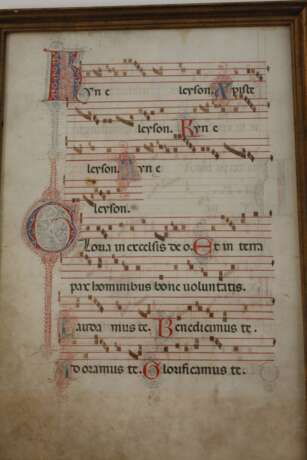 Kyrie
leyson. Xpiste
leyson. Kyrie
leyson. Kyrie
leyson.
Gloria in excelsis deo. Et in terra
pax hominibus bone voluntatis.
Laudamus te. Benedicimus te.
Adoramus te. Glorificamus te.